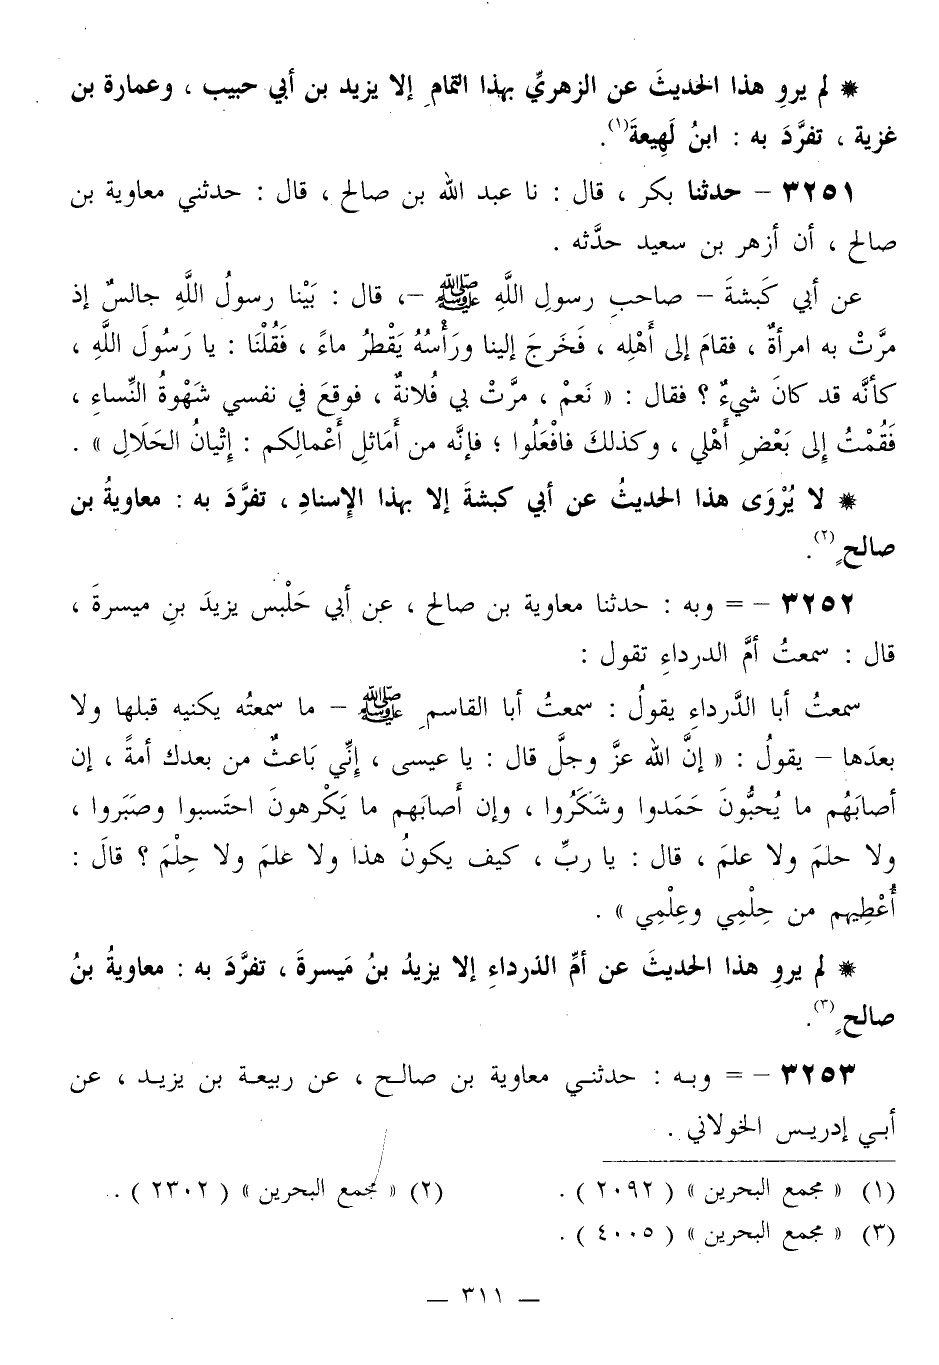 * لم يروِ هذا الحديثَ عن الزهريِّ بهذا التمامِ إلا يزيد بن أبي حبيب ، وعمارة بن
غزية ، تفرَّدَ به : ابنُ لَهِيعةَ(١).
٣٢٥١ – حدثنا بكر ، قال : نا عبد الله بن صالح ، قال : حدثني معاوية بن
صالح ، أن أزهر بن سعيد حدَّثه .
عن أبي كَبشةَ – صاحبِ رسولِ اللَّهِ ﷺ –، قال : بَيْنا رسولُ اللَّهِ جالسٌ إذ
مرَّتْ به امرأةٌ ، فقامَ إلى أَهْلِه ، فَخرجَ إلينا ورَأْسُهُ يَقْطرُ ماءً ، فَقُلْنَا : يا رَسُولَ اللَّهِ ،
كأنَّه قد كانَ شيءٌ ؟ فقال : « نَعمْ ، مرَّتْ بي فُلانةٌ ، فوقعَ في نفسي شَهْوةُ النِّساءِ ،
فَقُمْتُ إلى بَعْضِ أَهْلي ، وكذلكَ فافْعَلُوا ؛ فإنَّه من أَمَاثلِ أَعْمالِكم : إتْيانُ الحَلَالِ » .
* لا يُرْوَى هذا الحديثُ عن أبي كبشةَ إلا بهذا الإسنادِ ، تفرَّدَ به : معاويةُ بن
صالحٍ(٢).
٣٢٥٢ – = وبه : حدثنا معاوية بن صالح ، عن أبي حَلْبس يزيدَ بنِ ميسرةَ ،
قال : سمعتُ أمَّ الدرداءِ تقول :
سمعتُ أبا الدَّرداءِ يقولُ : سمعتُ أبا القاسمِ ﷺ – ما سمعتُه يكنيه قبلها ولا
بعدَها – يقولُ : « إنَّ الله عزَّ وجلَّ قال : يا عيسى ، إنِّي بَاعثٌ من بعدك أمةً ، إن
أصابَهُم ما يُحبُّونَ حَمَدوا وشَكَرُوا ، وإن أَصابَهم ما يَكْرهونَ احتَسبوا وصَبَروا ،
ولا حلمَ ولا علمَ ، قال : يا ربِّ ، كيف يكونُ هذا ولا علمَ ولا حِلْمَ ؟ قالَ :
أُعْطِيهم من حِلْمِي وعِلْمِي » .
* لم يروِ هذا الحديثَ عن أمِّ الدرداءِ إلا يزيدُ بنُ مَيسرةَ ، تفرَّدَ به : معاويةُ بنُ
صالحٍ(٣).
٣٢٥٣ – = وبه : حدثني معاوية بن صالح ، عن ربيعة بن يزيد ، عن
أبي إدريس الخولاني .
(١) « مجمع البحرين » ( ٢٠٩٢ ) . (٢) « مجمع البحرين » ( ٢٣٠٢ ) .
(٣) « مجمع البحرين » ( ٤٠٠٥ ) .
— ٣١١ —